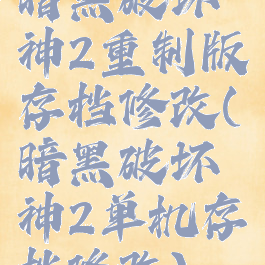 暗黑破坏
神2重制版
存档修改(
暗黑破坏
神2单机存
档修改)